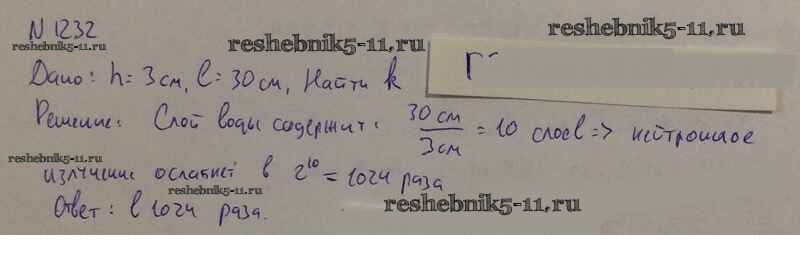 N 1232
reshebnik5-11.ru
Дано: h = 3 см, l = 30 см, Найти k
Решение: Слой воды содержит: 30 см / 3 см = 10 слоёв => нейтронное
reshebnik5-11.ru
излучение ослабнет в 2^10 = 1024 раза
reshebnik5-11.ru
Ответ: в 1024 раза.
reshebnik5-11.ru